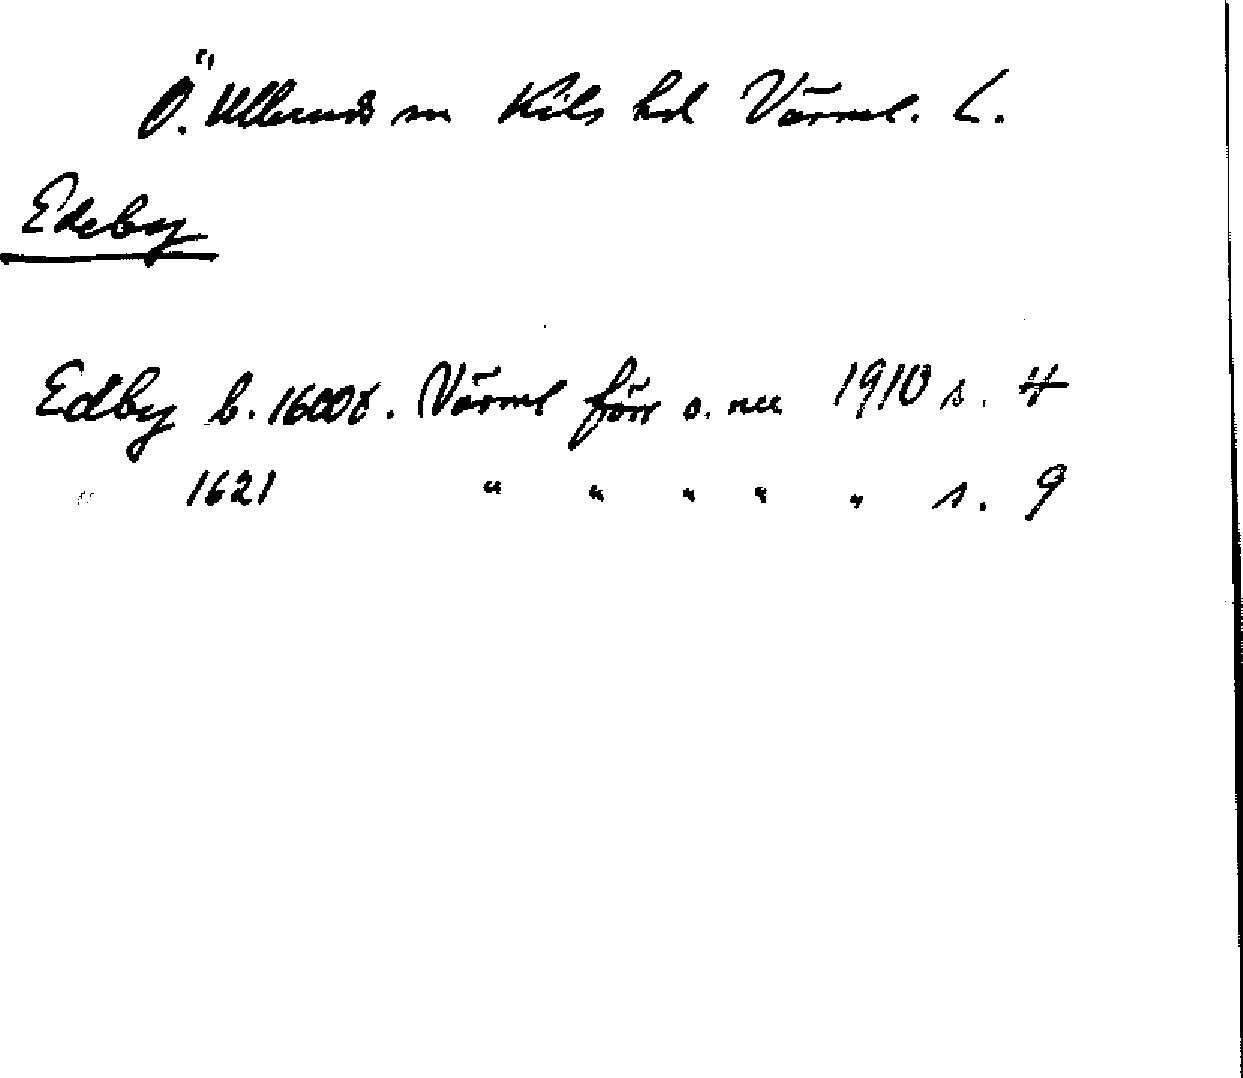 Ö. Ulleruds sn Kils hd Värml. L.
Edeby
Edby b. 1600t. Värml förr o. nu 1910 s. 4
" 1621 " " " " " s. 9